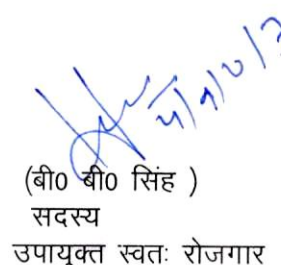 (बी0 बी0 सिंह )
सदस्य
उपायुक्त स्वतः रोजगार